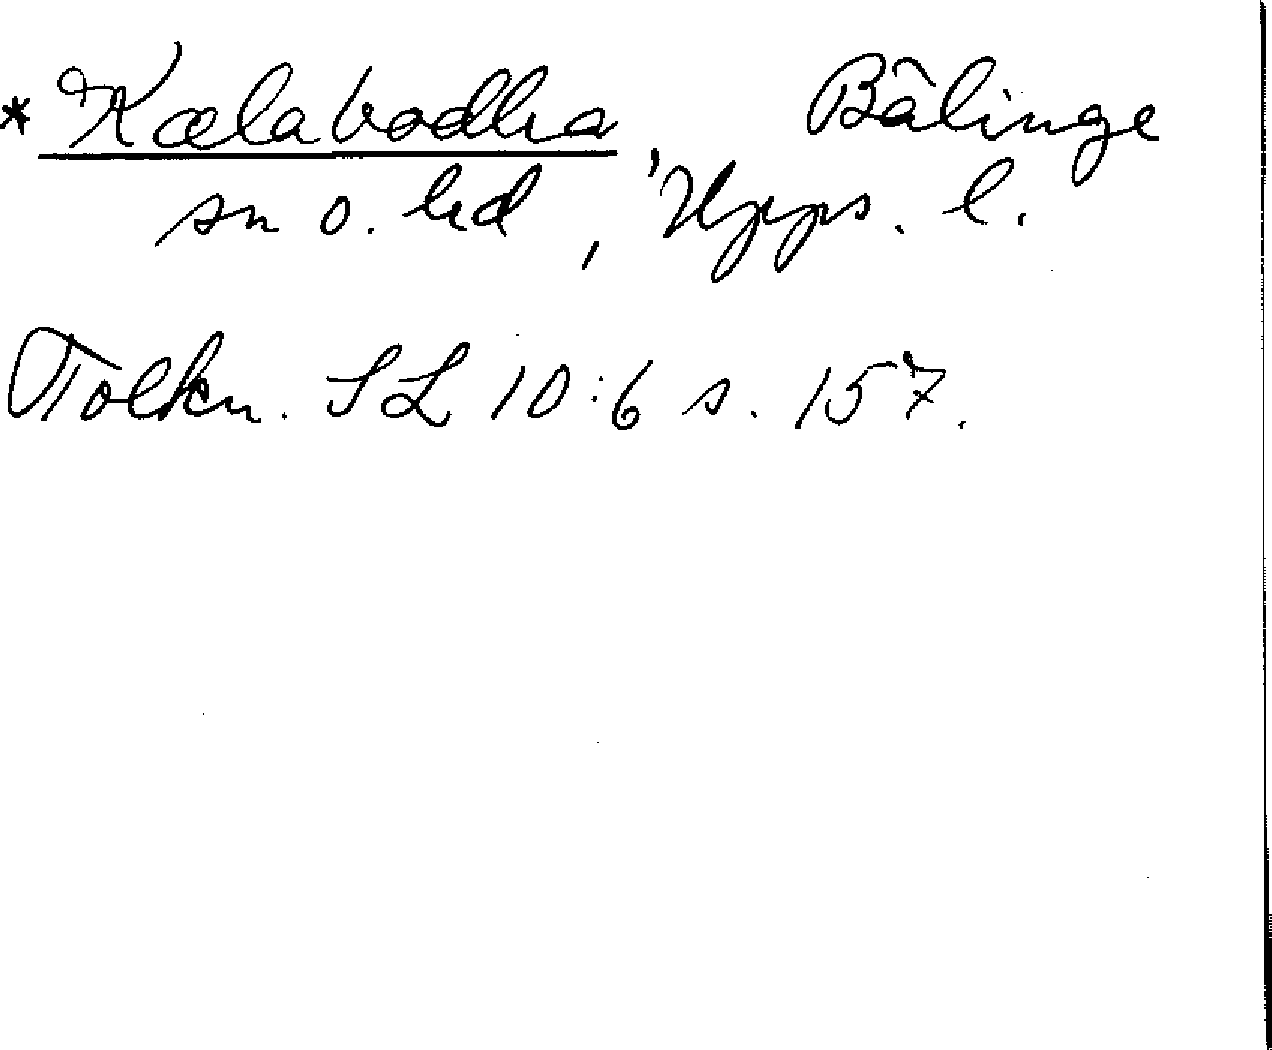 * Kælabodha, Bälinge
sn o. hd, Upps. l.
Tolkn. SL 10:6 s. 157.